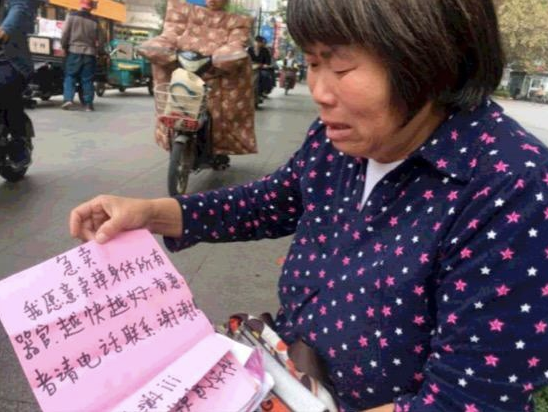 急卖
我愿意卖掉身体所有
器官.越快越好.有意
者请电话联系.谢谢!
!!!谢